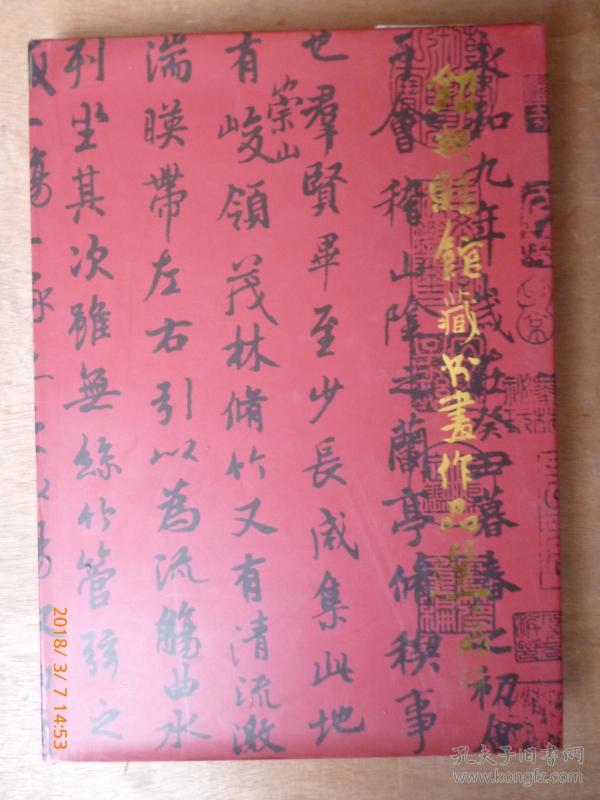 紹興縣館藏书畫作品集
永和九年歲在癸丑暮春之初
于會稽山陰之蘭亭脩稧事
也羣賢畢至少長咸集此地
有崇山峻領茂林脩竹又有清流激
湍暎帶左右引以為流觴曲水
列坐其次雖無絲竹管弦之
2018/ 3/ 7 14:53
孔夫子旧书网
www.kongfz.com